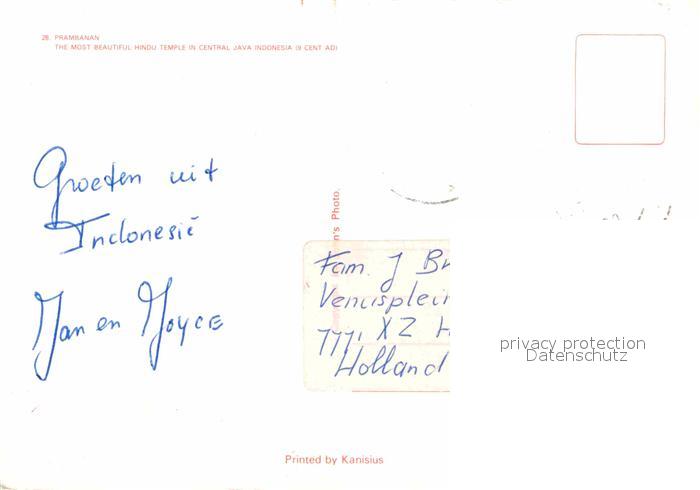 28. PRAMBANAN
THE MOST BEAUTIFUL HINDU TEMPLE IN CENTRAL JAVA INDONESIA (9 CENT AD)
Groeten uit
Indonesië
Jan en Joyce
n's Photo.
Fam. J Br
Venusplein
7771 XZ H
Holland
privacy protection
Datenschutz
Printed by Kanisius